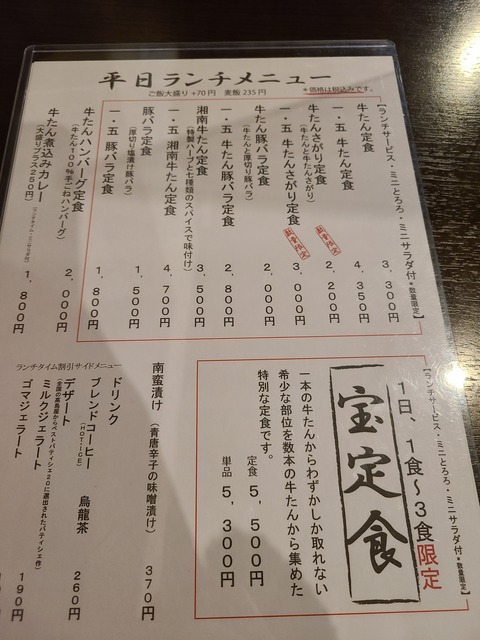 平日ランチメニュー
ご飯大盛り+70円 麦飯235円
*価格は税込みです。
【ランチサービス・ミニとろろ・ミニサラダ付*数量限定】
牛たん定食 3,300円
一・五 牛たん定食 4,350円
牛たんさがり定食 2,200円
(牛たんと牛たんさがり)
数量限定
一・五 牛たんさがり定食 3,000円
数量限定
牛たん豚バラ定食 2,000円
(牛たんと厚切り豚バラ)
一・五 牛たん豚バラ定食 2,800円
湘南牛たん定食 3,500円
(特製ハーブと七種類のスパイスで味付け)
一・五 湘南牛たん定食 4,700円
豚バラ定食 1,500円
(厚切り塩漬け豚バラ)
一・五 豚バラ定食 1,800円
牛たんハンバーグ定食 2,000円
(牛たん100%手ごねハンバーグ)
牛たん煮込みカレー 1,800円
(大盛りプラス250円)
【ランチサービス・ミニとろろ・ミニサラダ付*数量限定】
1日、1食〜3食限定
宝定食
一本の牛たんからわずかしか取れない
希少な部位を数本の牛たんから集めた
特別な定食です。
定食 5,500円
単品 5,300円
ランチタイム割引サイドメニュー
南蛮漬け (青唐辛子の味噌漬け) 370円
ドリンク
ブレンドコーヒー 烏龍茶 260円
(HOT・ICE)
デザート
ミルクジェラート 190円
ゴマジェラート